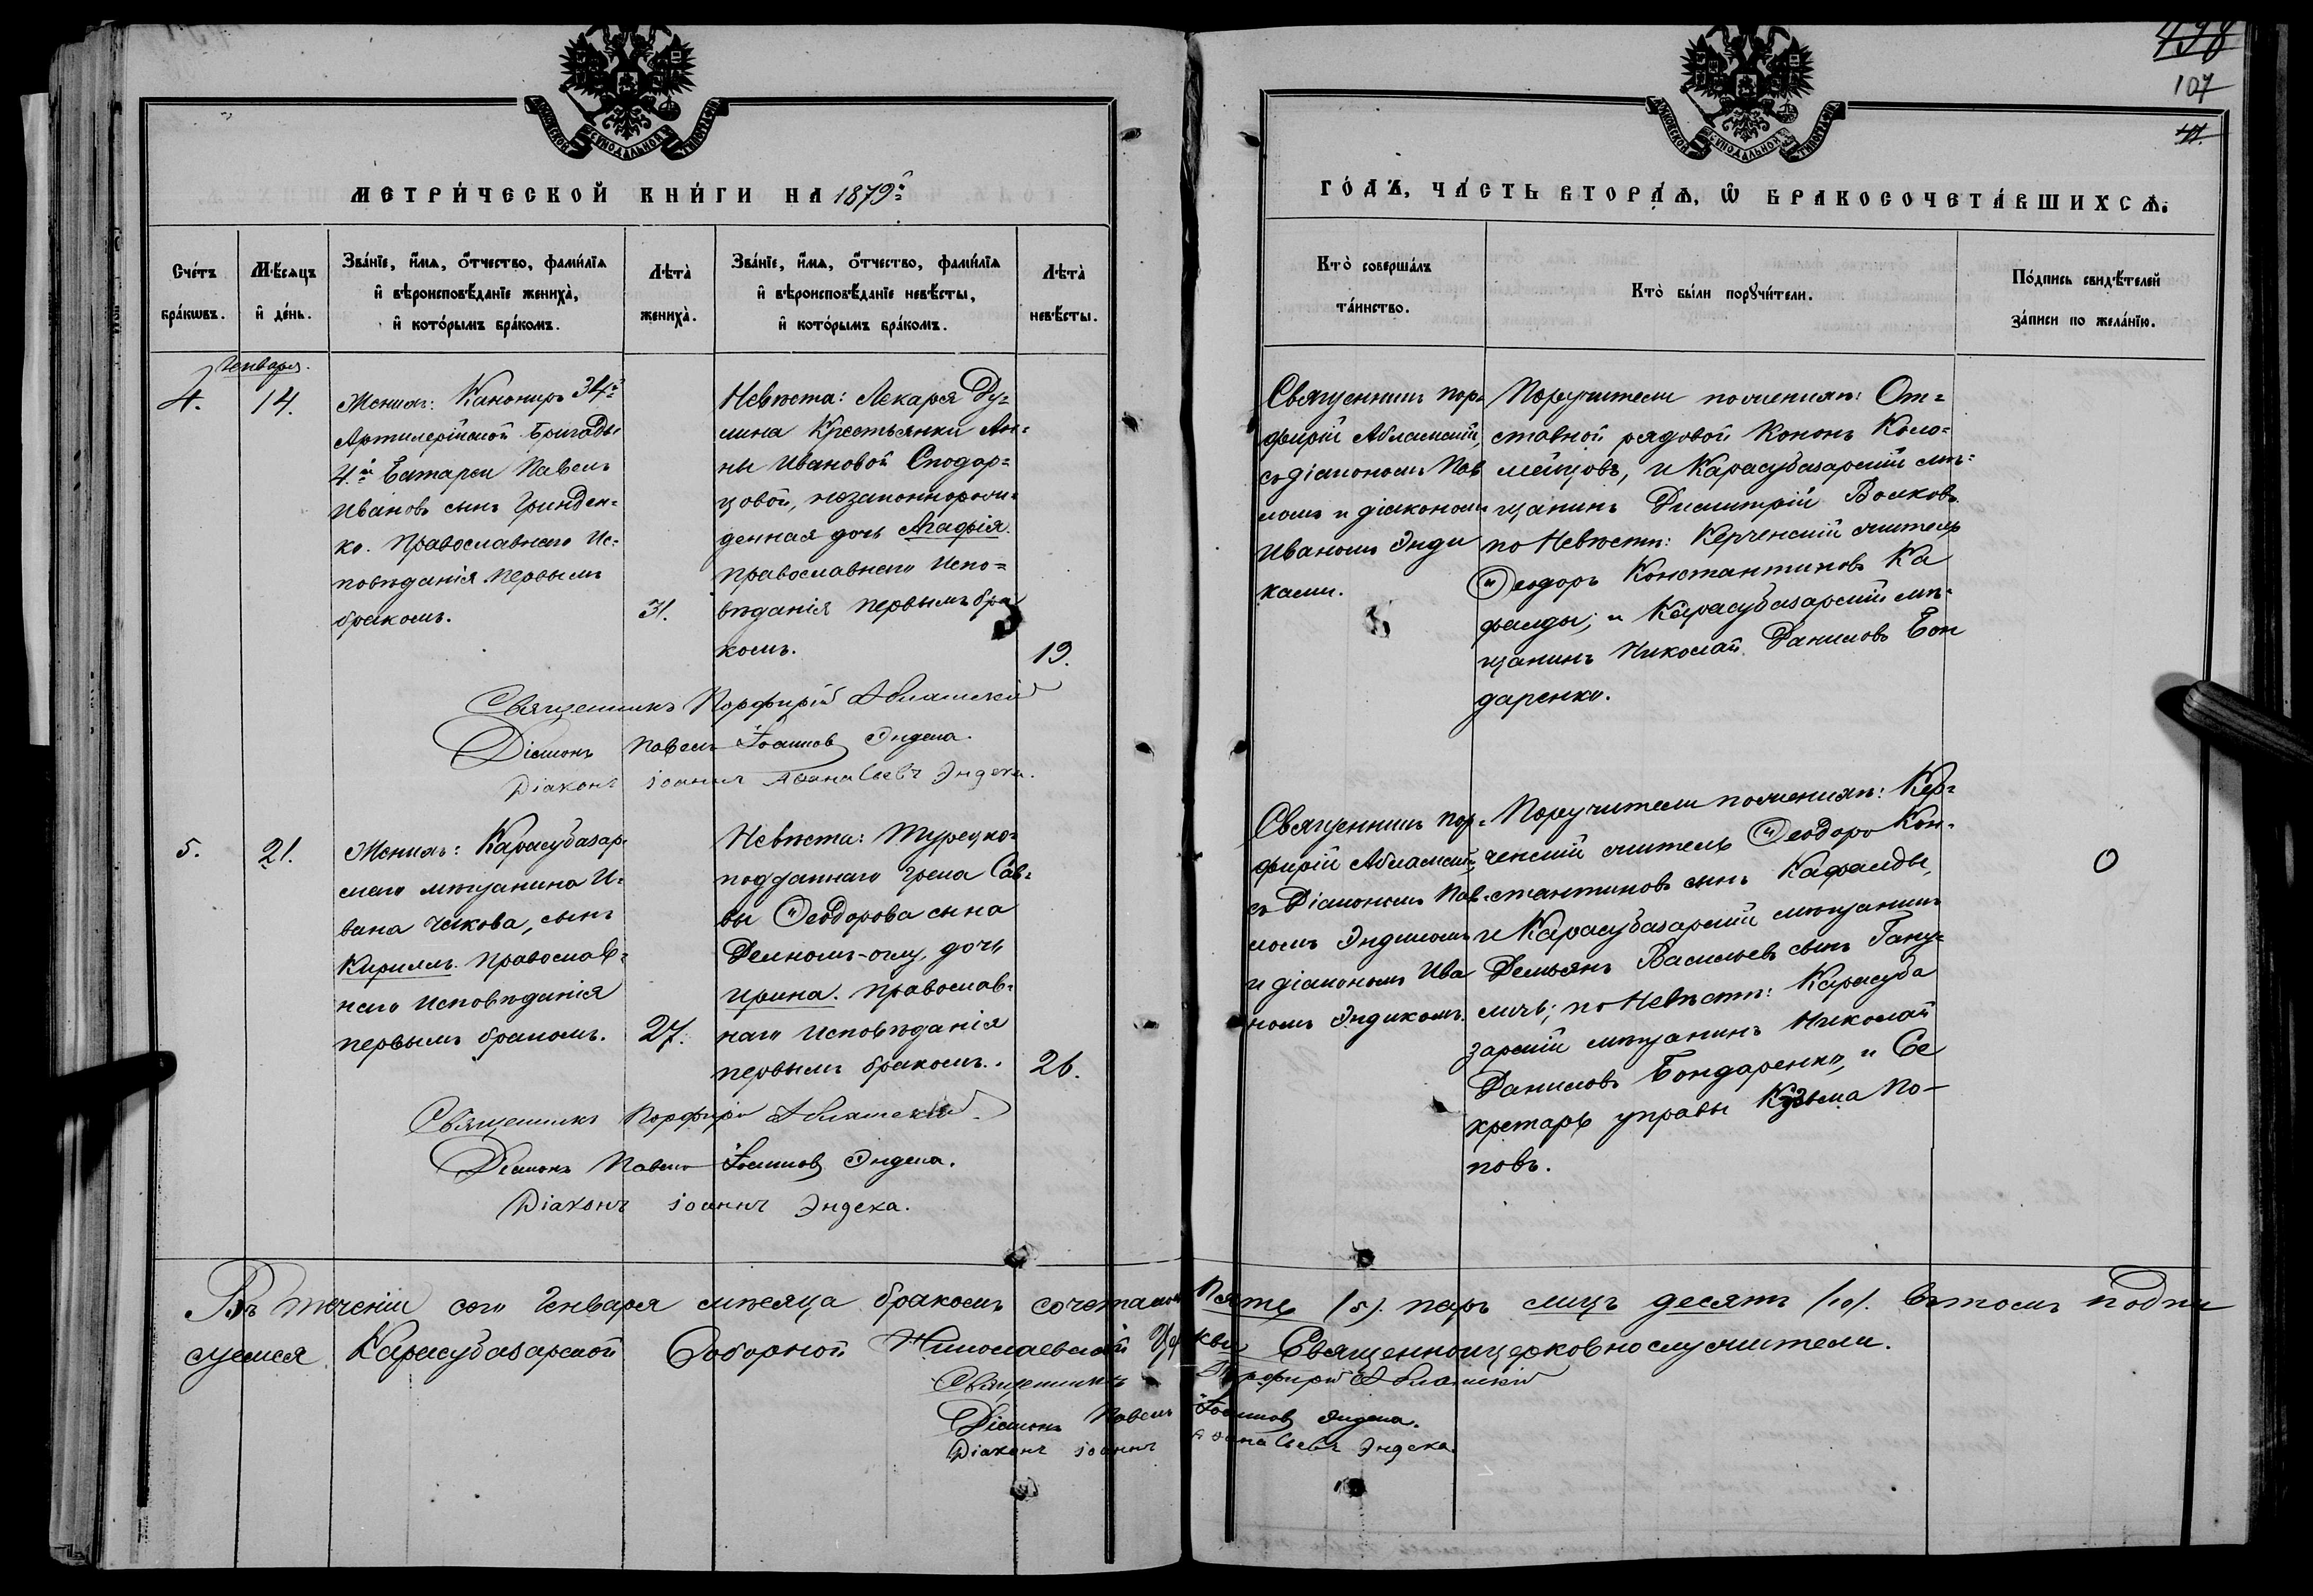 498
107
МОСКОВСКОЙ СѴНОДАЛЬНОЙ ТИПОГРАФІИ
МОСКОВСКОЙ СѴНОДАЛЬНОЙ ТИПОГРАФІИ
МЕТРИ́ЧЕСКОЙ КНИ́ГИ НА 1879й
ГО́ДЪ, ЧА́СТЬ ВТОРА́Ѧ, Ѡ҆ БРАКОСОЧЕТА́ВШИХСѦ.
Сче́тъ бра́кωвъ.
Мѣ́сѧцъ и҆ де́нь.
Зва́нїе, и҆́мѧ, ѻ҆́тчество, фами́лїѧ
и҆ вѣроисповѣ́данїе жениха̀,
и҆ кото́рымъ бра́комъ.
Лѣта̀ жениха̀.
Зва́нїе, и҆́мѧ, ѻ҆́тчество, фами́лїѧ
и҆ вѣроисповѣ́данїе невѣ́сты,
и҆ кото́рымъ бра́комъ.
Лѣта̀ невѣ́сты.
Кто̀ соверша́лъ
та́инство.
Кто̀ бы́ли порꙋчи́тели.
По́дпись свидѣ́телей
за́писи по жела́нїю.
Генваря.
4.
14.
Женихъ: Канониръ 34й
Артилерійской бригады
4.й Батареи Павелъ
Ивановъ сынъ Гринден-
ко. Православнаго Ис-
повѣданія первымъ
бракомъ.
31.
Невѣста: Лекаря Ду-
мина Крестьянки Ан-
ны Ивановой Сподар-
цовой, незаконнорож-
денная дочь Агафія.
Православнаго Испо-
вѣданія первымъ бра
комъ.
19.
Священникъ Пор-
фирій Абламскій,
съ діакономъ Пав
ломъ и діакономъ
Иваномъ Энди
ками.
Поручители по женихѣ: От-
ставной рядовой Кононъ Коло-
мейцовъ, и Карасубазарскій мѣ-
щанинъ Димитрій Волковъ
по Невѣстѣ: Керченскій житель
Ѳеодоръ Константиновъ Ка
фалды; и Карасубазарскій мѣ-
щанинъ Николай Даниловъ Бон
даренко.
Священникъ Порфирій Абламскій
Діаконъ Павелъ Іоанновъ Эндека.
Діаконъ Іоаннъ Аѳанасьевъ Эндека.
5.
21.
Женихъ: Карасубазар-
скаго мѣщанина И-
вана Чикова, сынъ
Кириллъ. Православ-
наго Исповѣданія
первымъ бракомъ.
27.
Невѣста: Турецко-
подданнаго Грека Сав-
вы Ѳеодорова сына
-оглу, дочь
Ирина. Православ-
наго Исповѣданія
первымъ бракомъ.
26.
Священникъ Пор-
фирій Абламскій,
съ Діакономъ Пав-
ломъ Эндикомъ
и діакономъ Ива
номъ Эндикомъ.
Поручители по женихѣ: Кер-
ченскій житель Ѳеодоръ Кон-
стантиновъ сынъ Кафалды,
и Карасубазарскій мѣщанинъ
Демьянъ Васильевъ сынъ
по Невѣстѣ: Карасуба
зарскій мѣщанинъ Николай
Даниловъ Бондаренко, и Се
кретарь управы Кузьма По-
повъ.
Священникъ Порфирій Абламскій
Діаконъ Павелъ Іоанновъ Эндека.
Діаконъ Іоаннъ Эндека.
Въ теченіи сего Генваря мѣсяца бракомъ сочетались Пять (5). паръ лицъ десять (10). Въ томъ подпи
суемся Карасубазарской Соборной Николаевской Церкви Священноцерковнослужители.
Священникъ Порфирій Абламскій
Діаконъ Павелъ Іоанновъ Эндека.
Діаконъ Іоаннъ Аѳанасьевъ Эндека.